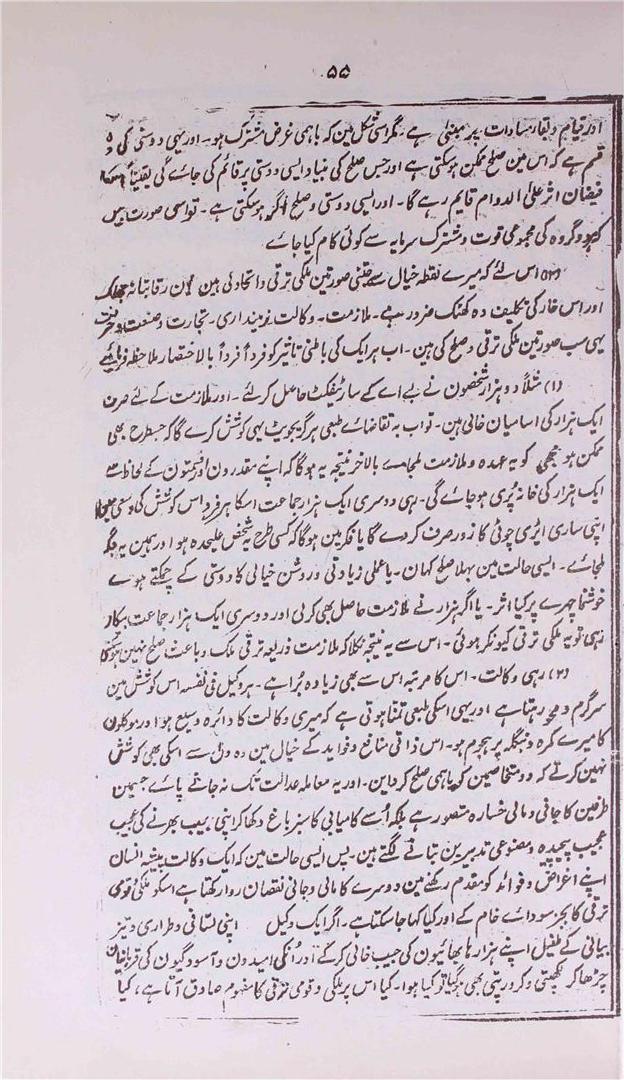 ۵۵
اور قیام و بقا، مساوات پر مبنی ہے۔ مگر اسی شکل مین کہ باہمی غرض مشترک ہو۔ اور یہی دوستی کی وہ
قسم ہے کہ اس مین صلح ممکن ہو سکتی ہے اور جس صلح کی بنیاد ایسی دوستی پر قائم کی جاے گی یقیناً اسکا
فیضان اثر علیٰ الدوام قایم رہے گا۔ اور ایسی دوستی و صلح اگر ہو سکتی ہے۔ تو اسی صورت مین
کہ ہر دو گروہ کی مجموعی قوت و مشترک سرمایہ سے کوئی کام کیا جاے
اس لئے کہ میرے نقطہ خیال سے جتنی صورتین ملکی ترقی و اتحاد کی ہین ان رقابتانہ
اور اس خار کی تکلیف دہ کھٹک ضرور ہے۔ ملازمت۔ وکالت۔ زمینداری۔ تجارت و صنعت و حرفت
یہی سب صورتین ملکی ترقی و صلح کی ہین۔ اب ہر ایک کی باطنی تاثیر کو فرداً فرداً بالاختصار ملاحظہ فرمائیے
(۱) مثلاً دو ہزار شخصون نے بی اے کے سارٹیفکٹ حاصل کر لئے۔ اور ملازمت کے لئے صرف
ایک ہزار کی اسامیان خالی ہین۔ تو اب بہ تقاضاے طبعی ہر گریجویٹ یہی کوشش کرے گا کہ جسطرح بھی
ممکن ہو مجھی کو یہ عہدہ و ملازمت ملجاے بالاخر نتیجہ یہ ہو گا کہ اپنے مقدرون اور قسمتون کے لحاظ سے
ایک ہزار کی خانہ پُری ہو جاے گی۔ رہی دوسری ایک ہزار جماعت اسکا ہر فرد اس کوشش کی وسعی مین
اپنی ساری ایڑی چوٹی کا زور صرف کر دے گا یا فکر مین ہو گا کہ کسی طرح یہ شخص علیحدہ ہو اور ہمین یہ جگہ
ملجاے۔ ایسی حالت مین بہلا صلح کہان۔ یا علمی زیادتی و روشن خیالی کا دوستی کے چمکتے ہوے
خوشنما چہرے پر کیا اثر۔ یا اگر ہزار نے ملازمت حاصل بھی کر لی اور دوسری ایک ہزار جماعت بیکار
رہی تو یہ ملکی ترقی کیونکر ہوئی۔ اس سے یہ نتیجہ نکلا کہ ملازمت ذریعہ ترقی ملک و باعث صلح نہین ہو سکتا
(۲) رہی وکالت۔ اس کا مرتبہ اس سے بھی زیادہ بُرا ہے۔ ہر وکیل فی نفسہ اس کوشش مین
سرگرم و محو رہتا ہے اور یہی اسکی طبعی تمنا ہوتی ہے کہ میری وکالت کا دائرہ وسیع ہو اور موکلون
کا میرے کمرہ و بنگلہ پر ہجوم ہو۔ اس ذاتی منافع و فواید کے خیال مین وہ دل سے اسکی بھی کوشش
نہین کرتے کہ دو متخاصمین کو باہمی صلح کر دا ین۔ اور یہ معاملہ عدالت تک نہ جانے پاے جسمین
طرفین کا جانی و مالی خسارہ متصور ہے بلکہ اُسے کامیابی کا سبز باغ دکھا کر اپنی جیب بھرنے کی عجیب
عجیب پیچیدہ و مصنوعی تدبیرین بتانے لگتے ہین۔ پس ایسی حالت مین کہ ایک وکالت پیشہ انسان
اپنے اغراض و فوائد کو مقدم رکھنے مین دوسرے کا مالی و جانی نقصان روا رکھتا ہے اسکو ملکی و قومی
ترقی کا بجز سوداے خام کے اور کیا کہا جا سکتا ہے۔ اگر ایک وکیل اپنی لسانی و طراری و تیز
بیانی کے طفیل اپنے ہزارہا بھائیون کی جیب خالی کر کے اور اُنکی امیدون و آسودگیون کی قربانیان
چڑھا کر لکھپتی و کرور پتی بھی ہو گیا تو کیا ہوا۔ کیا اس پر ملکی و قومی ترقی کا مفہوم صادق آتا ہے، کیا